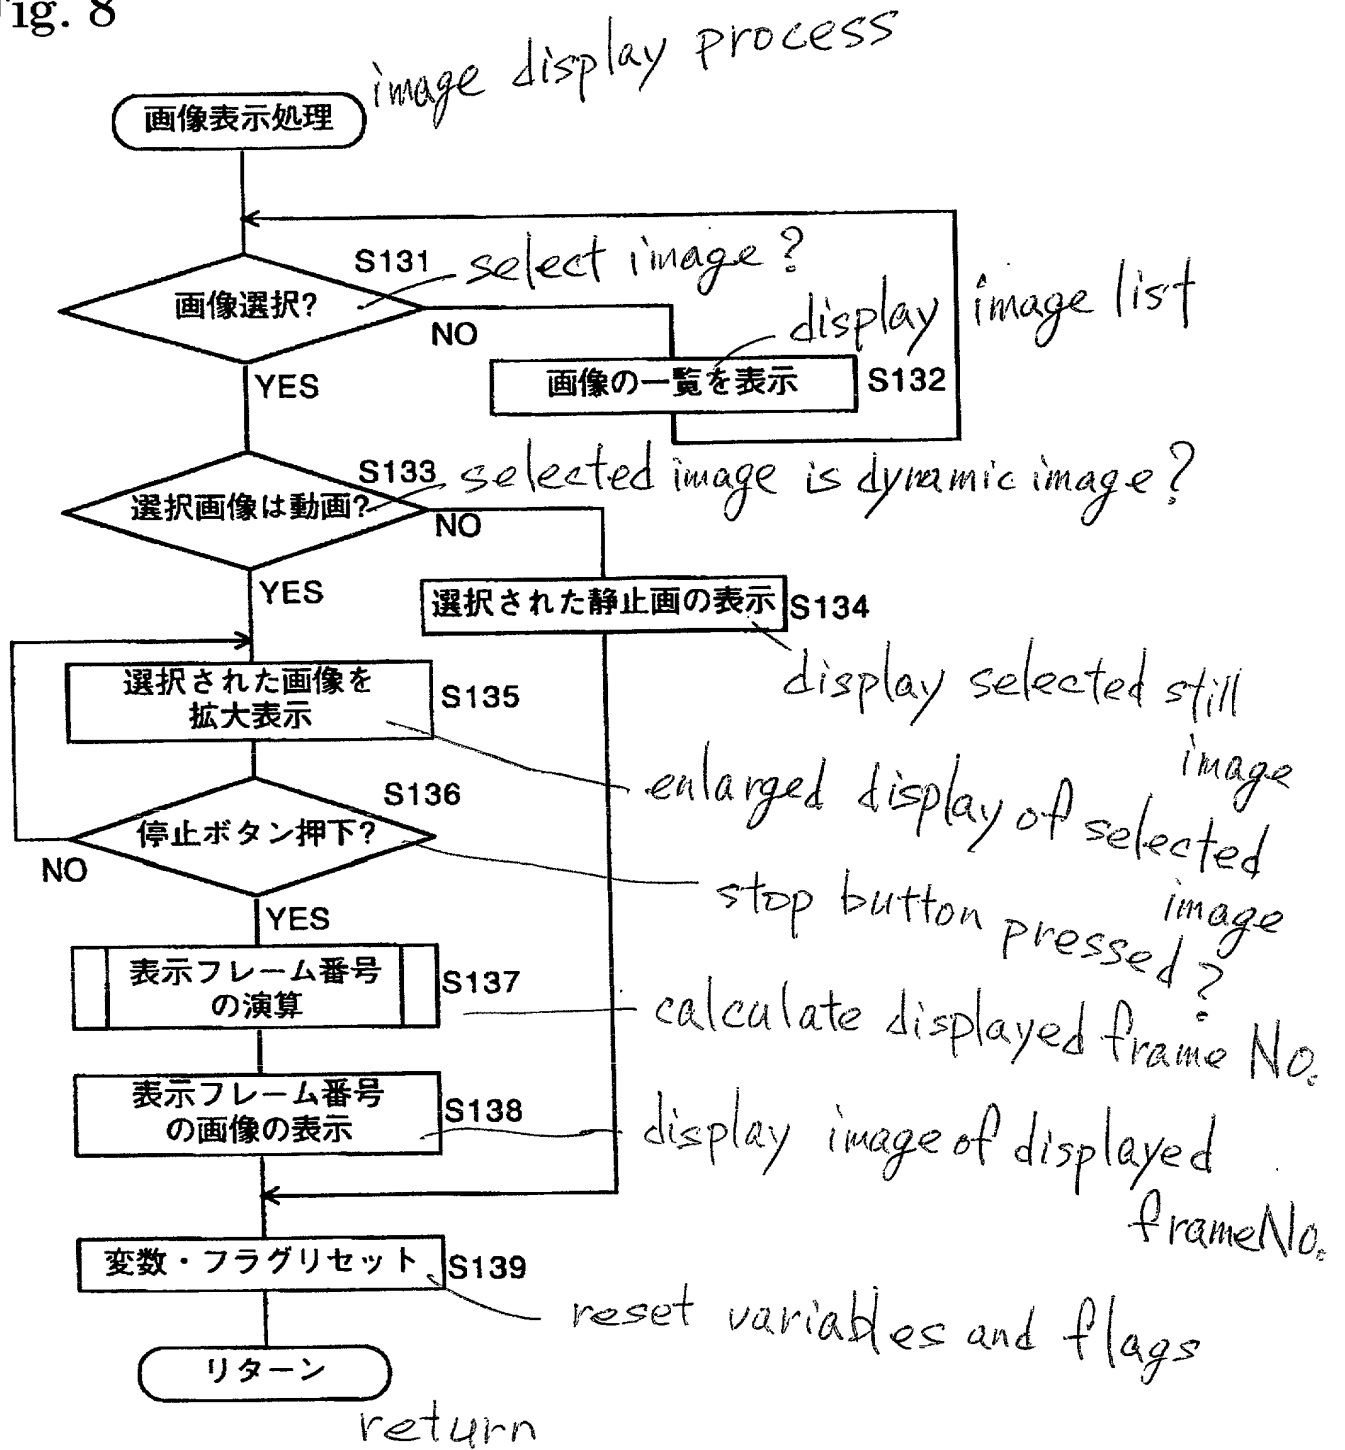 Fig. 8
image display process
画像表示処理
S131
select image?
画像選択?
NO
YES
display image list
画像の一覧を表示
S132
S133
selected image is dynamic image?
選択画像は動画?
NO
YES
選択された静止画の表示
S134
display selected still
image
選択された画像を
拡大表示
S135
enlarged display of selected
image
S136
停止ボタン押下?
NO
YES
stop button pressed?
表示フレーム番号
の演算
S137
calculate displayed frame No.
表示フレーム番号
の画像の表示
S138
display image of displayed
frame No.
変数・フラグリセット
S139
reset variables and flags
リターン
return